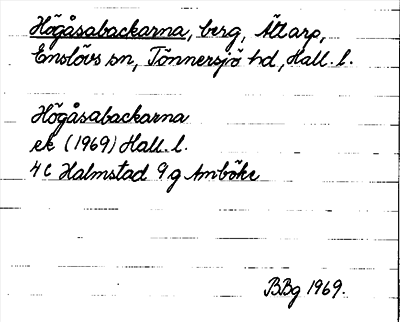 Högåsabackarna, berg, Ättarp,
Enslövs sn, Tönnersjö hd, Hall. l.
Högåsabackarna
ek (1969) Hall. l.
4 C Halmstad 9 g Amböke
BBg 1969.